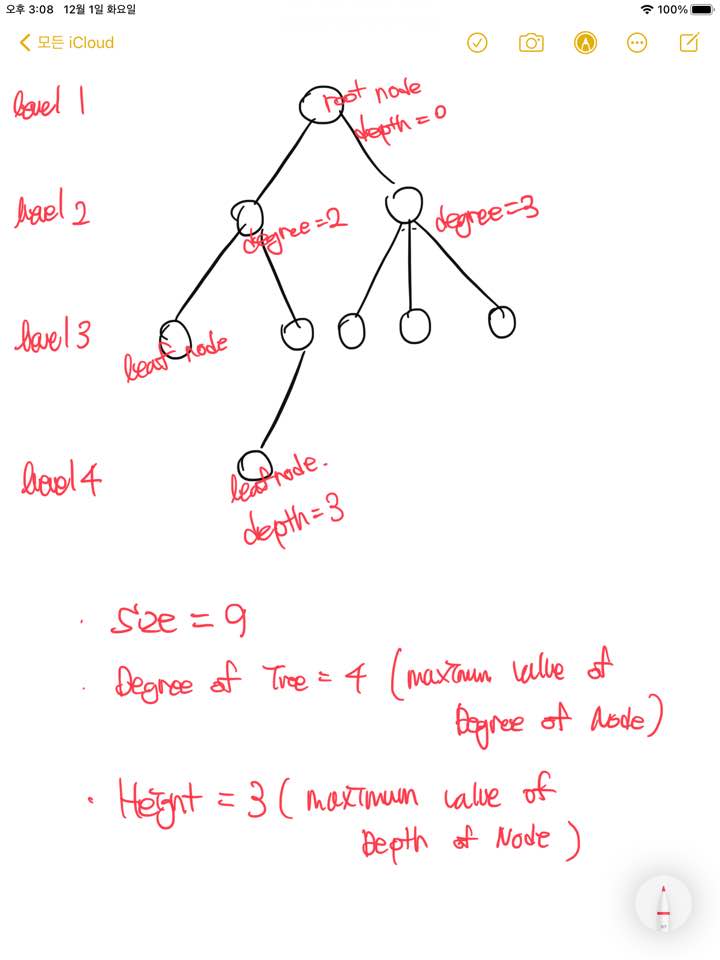 오후 3:08 12월 1일 화요일
100%
모든 iCloud
level 1
root node
depth = 0
level 2
degree = 2
degree = 3
level 3
leaf node
level 4
leaf node.
depth = 3
· Size = 9
· Degree of Tree = 4 (maximum value of
Degree of Node)
· Height = 3 (maximum value of
Depth of Node)